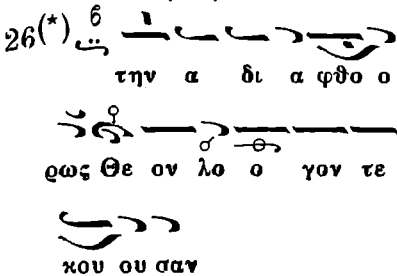 26(*) την α δι α φθο ο
ρως Θε ον λο ο γον τε
κου ου σαν